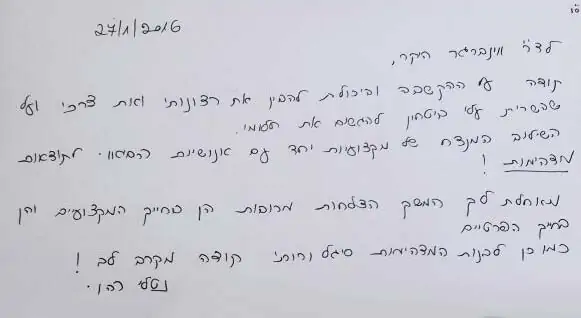 ס"ד
27/1/2016
לד"ר ווינברגר היקר,
תודה על ההקשבה והיכולת להבין את רצונותי ואת צרכי ועל
שהשרית עלי ביטחון להגשים את חלומי.
השילוב המנצח של מקצועיות יחד עם אנושיות הביאו לתוצאות
מדהימות!
מאחלת לך המשך הצלחות מרובות הן בחייך המקצועיים והן
בחייך הפרטיים
כמו כן לבנות המדהימות סיגל ורותי תודה מקרב לב!
נטלי כהן.